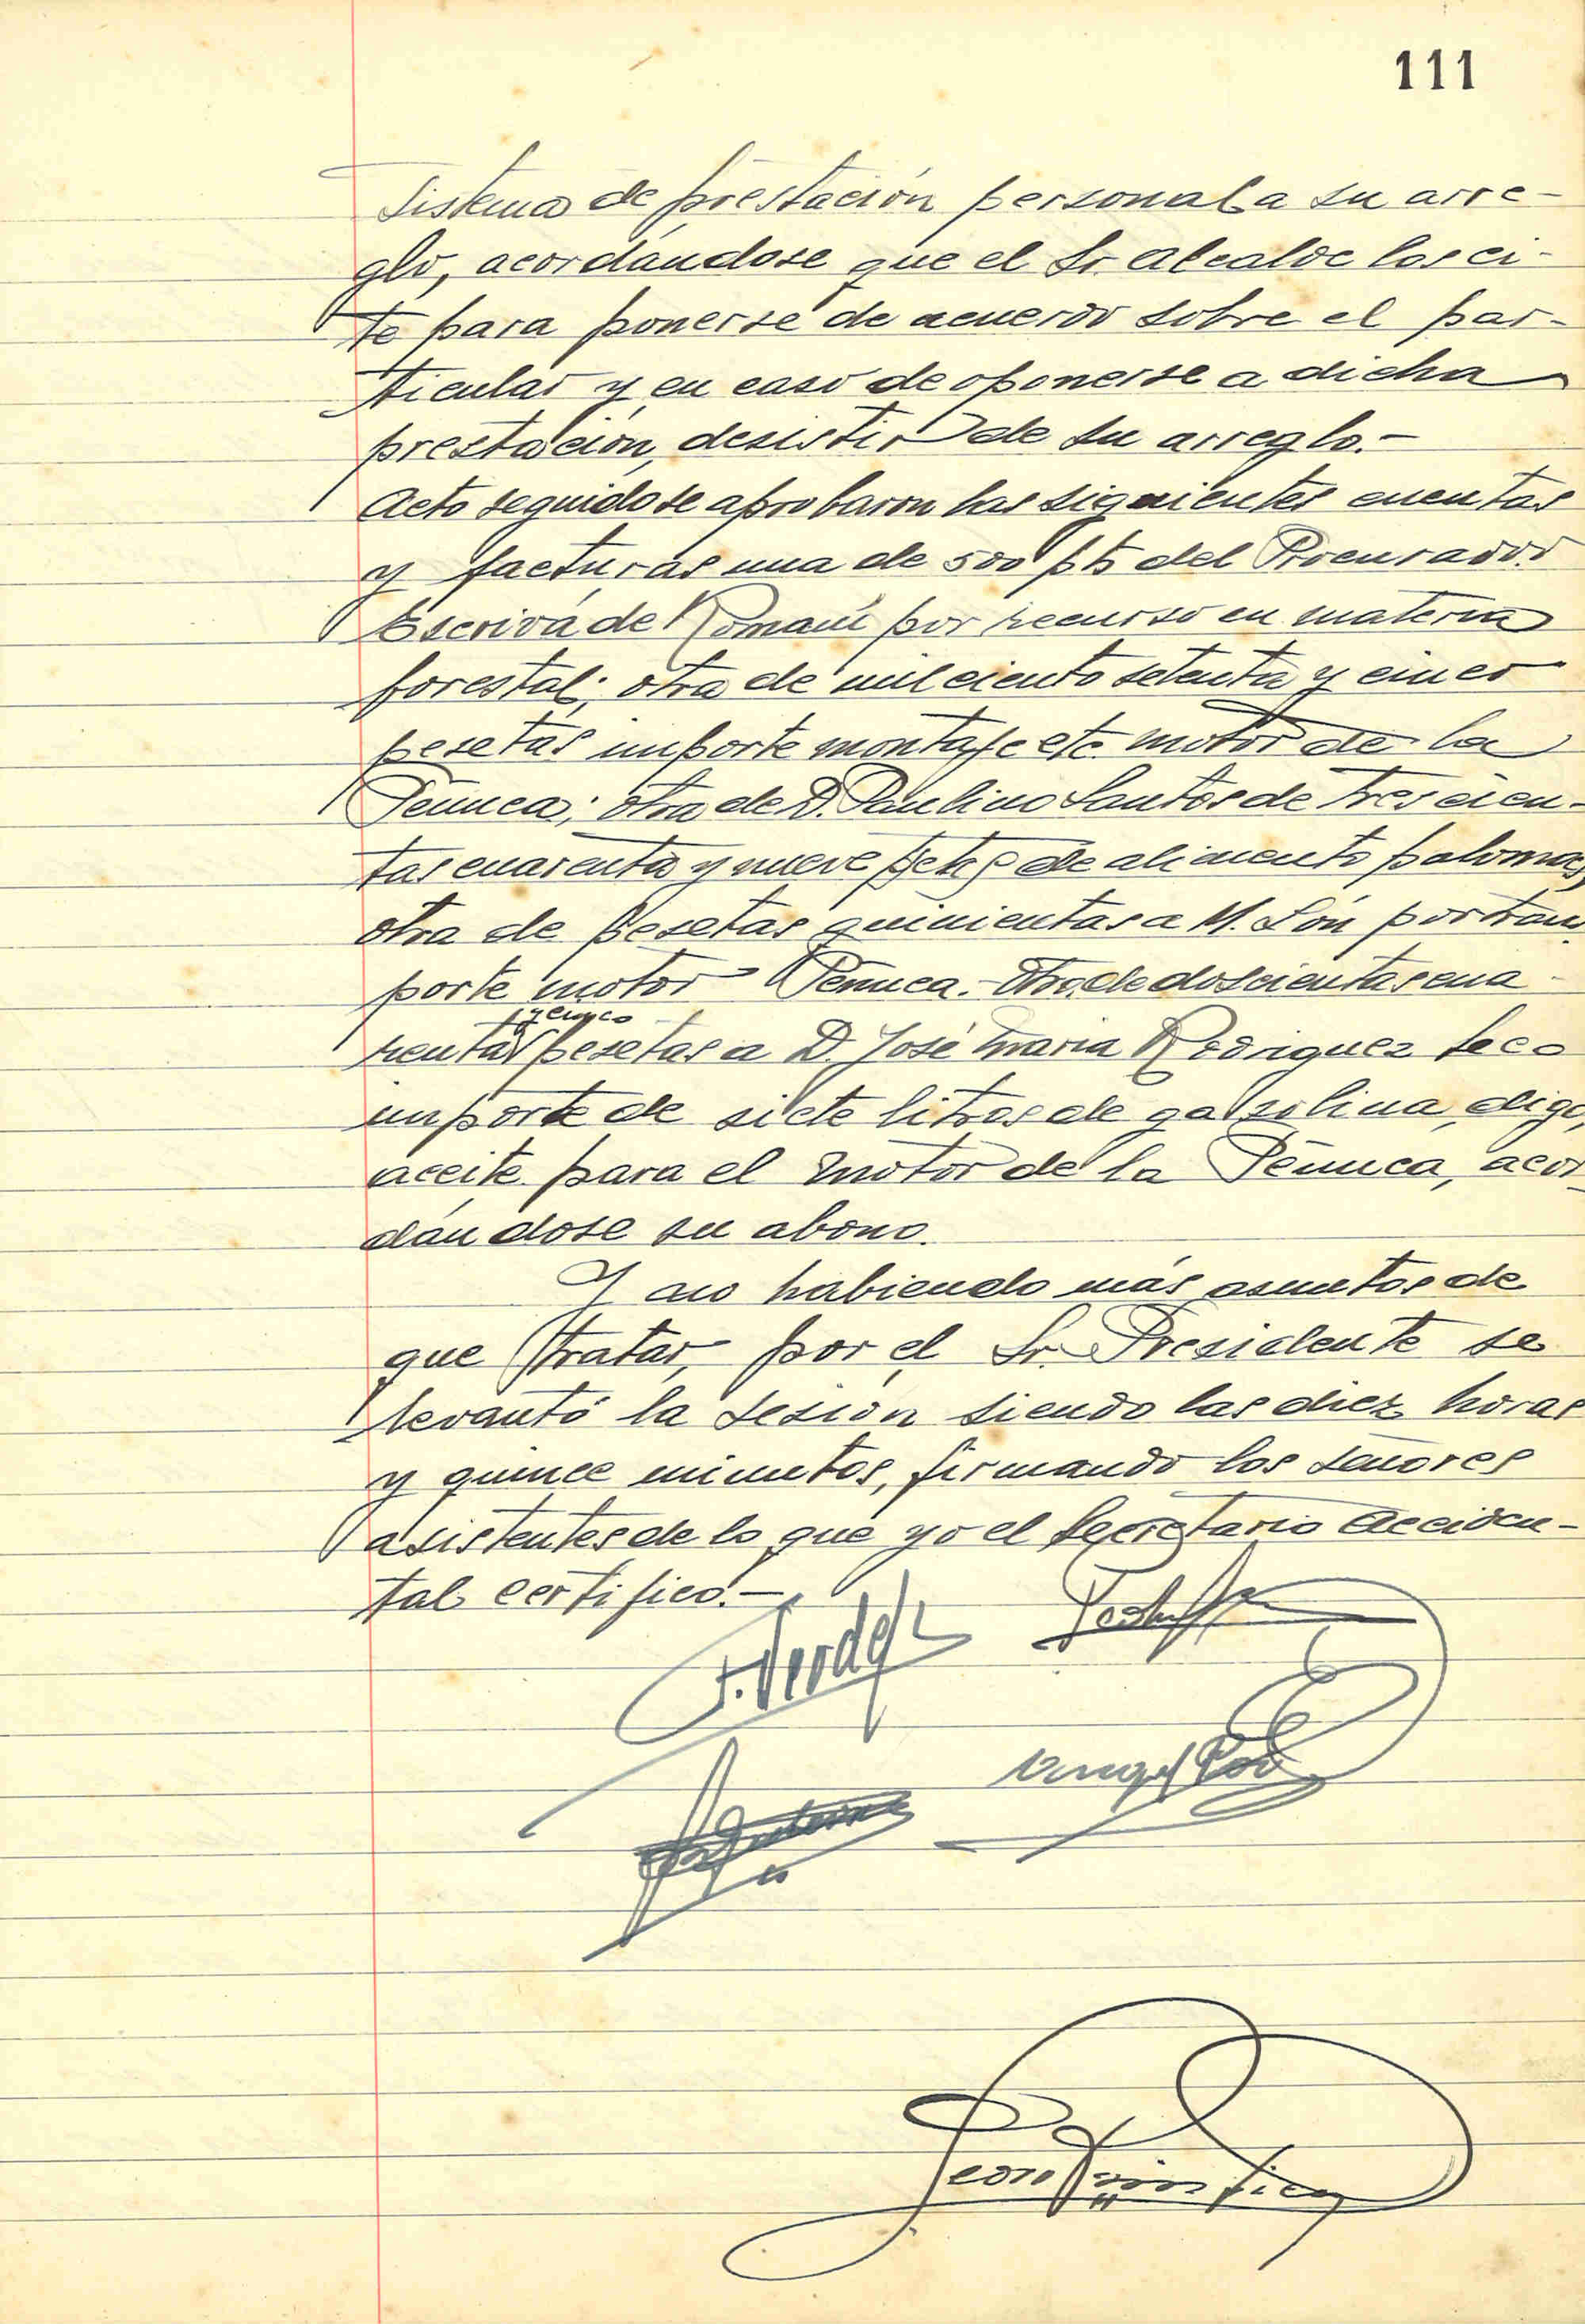 111
sistema de prestación personal a su arre-
glo, acordándose que el Sr. Alcalde los ci-
te para ponerse de acuerdo sobre el par-
ticular y en caso de oponerse a dicha
prestación, desistir de su arreglo.-
Acto seguido se aprobaron las siguientes cuentas
y facturas una de 500 pts del Procurador
Escrivá de Romaní por recurso en materia
forestal; otra de mil ciento setenta y cinco
pesetas importe montaje etc. motor de la
Peñuca; otra de D. Paulino Santos de trescien-
tas cuarenta y nueve pts de alimento palomas,
otra de pesetas quinientas a M. Són por trans
porte motor Peñuca.- Otra de doscientas cua-
y cinco
renta pesetas a D. José Maria Rodriguez Seco
importe de siete litros de gasolina, digo,
aceite para el motor de la Peñuca, acor-
dándose su abono.
Y no habiendo más asuntos de
que tratar, por el Sr. Presidente se
levantó la sesión siendo las diez horas
y quince minutos, firmando los señores
asistentes de lo que yo el Secretario acciden-
tal certifico.-